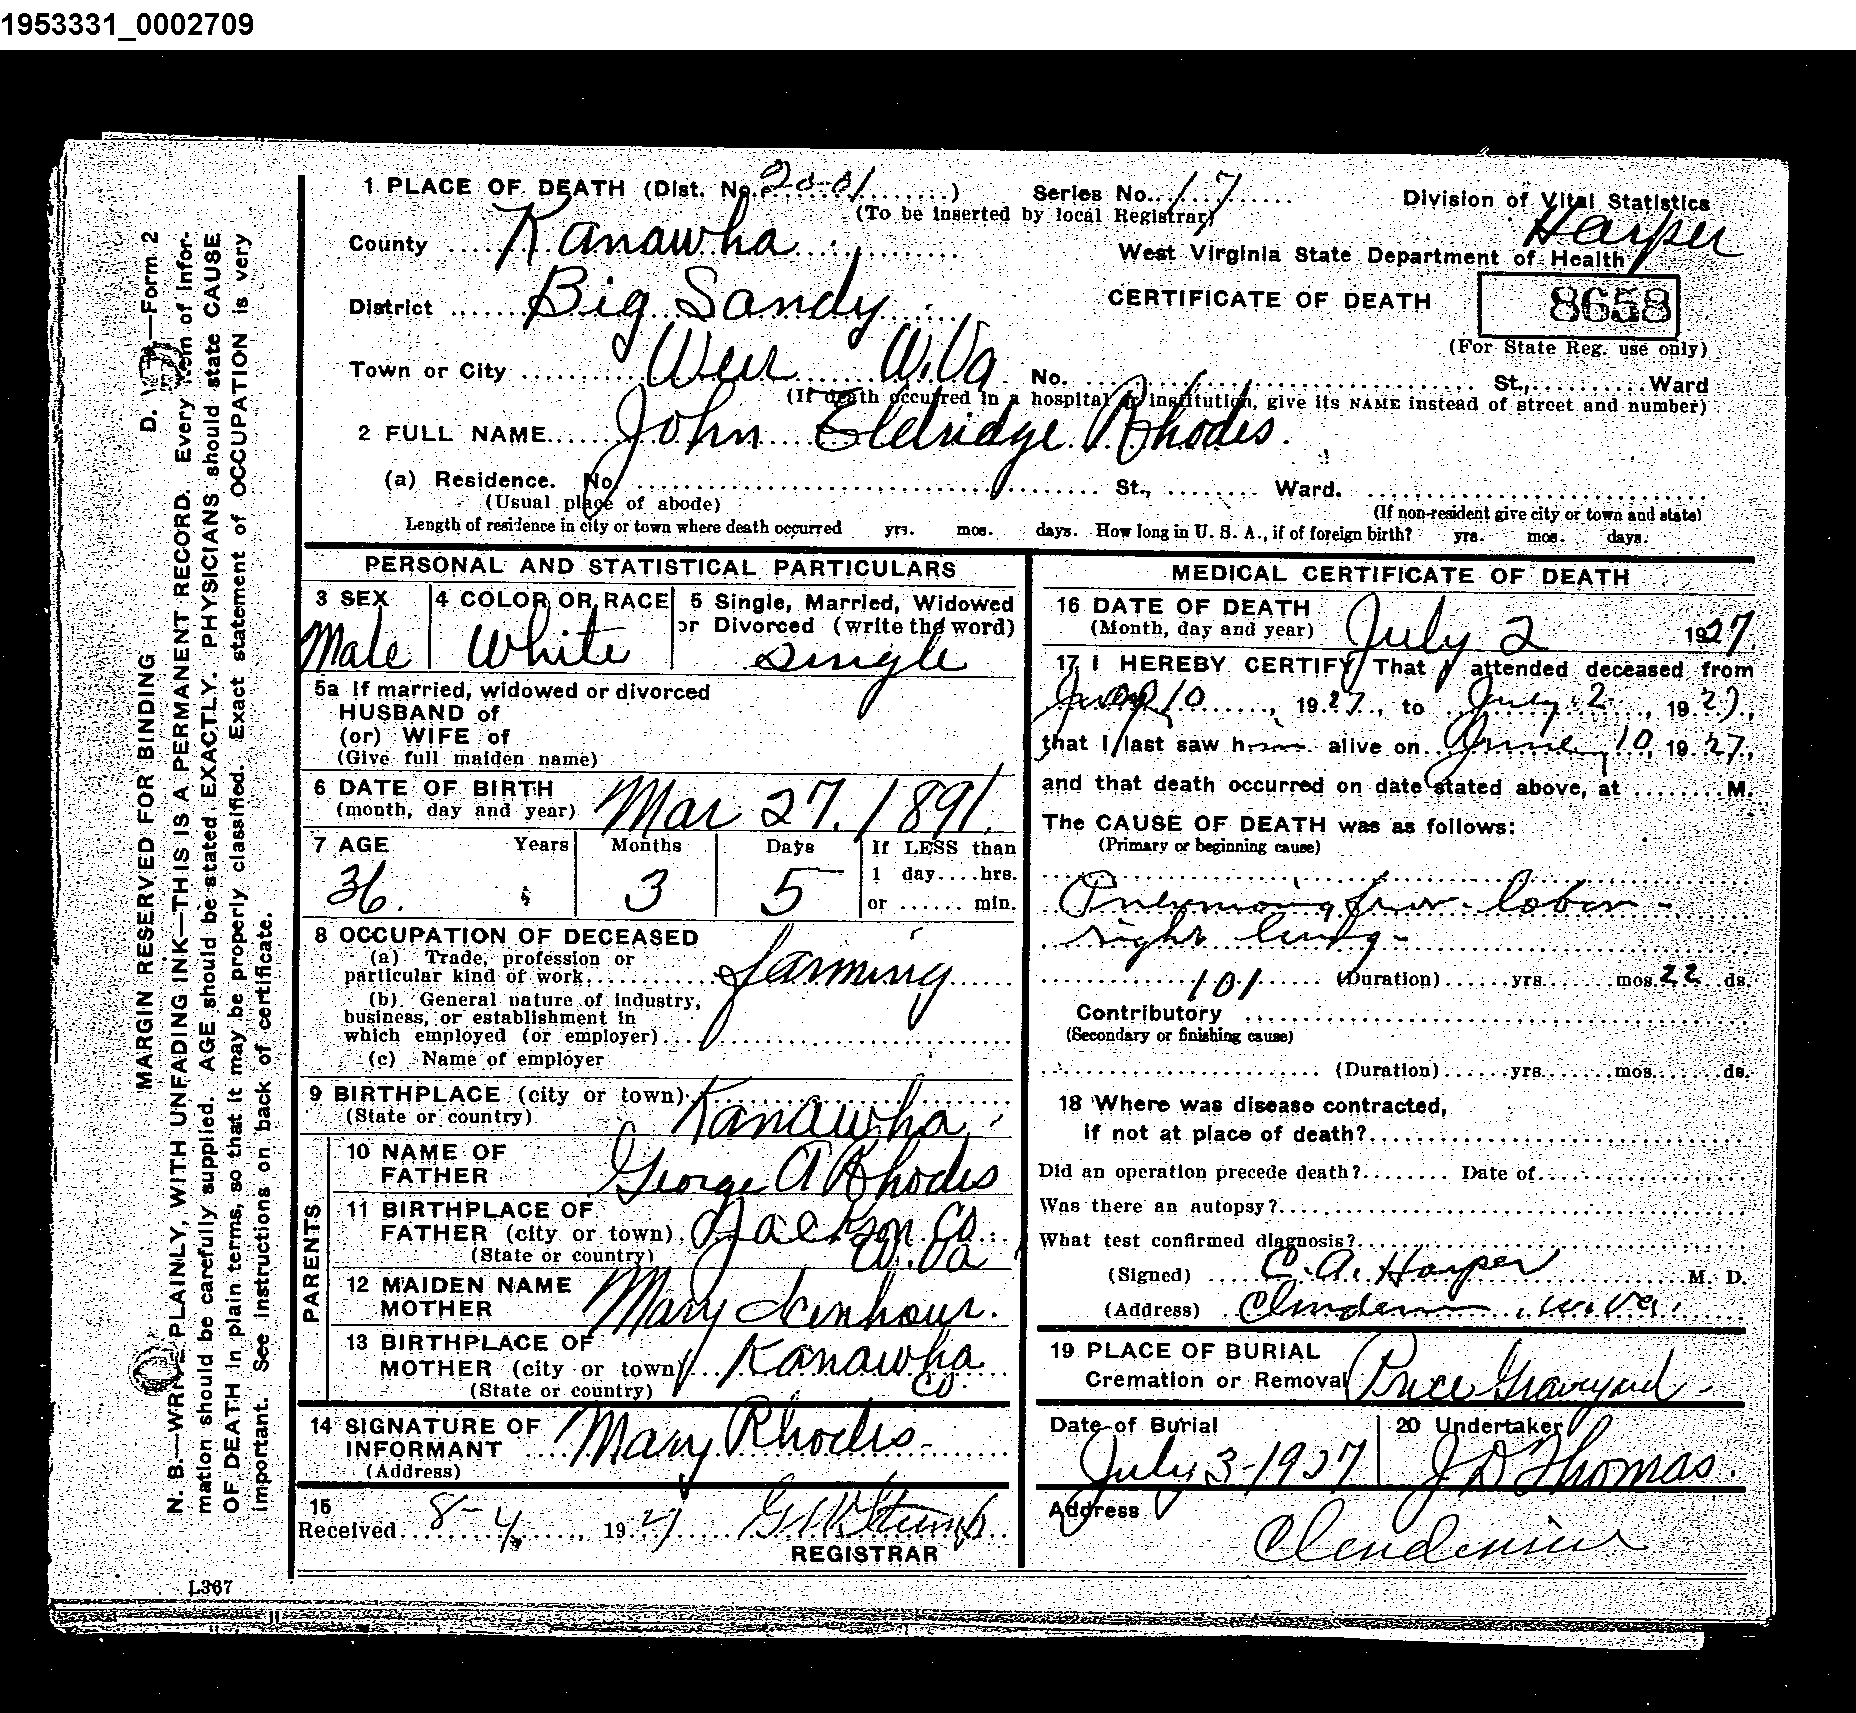 1953331_0002709
1 PLACE OF DEATH (Dist. No. 20-01 ) Series No. 17 Division of Vital Statistics
(To be inserted by local Registrar) Harper
County Kanawha West Virginia State Department of Health
District Big Sandy CERTIFICATE OF DEATH 8658
(For State Reg. use only)
Town or City Weir W.Va No. St., Ward
(If death occurred in a hospital or institution, give its NAME instead of street and number)
2 FULL NAME John Eldridge Rhodes.
(a) Residence. No. St., Ward.
(Usual place of abode) (If non-resident give city or town and state)
Length of residence in city or town where death occurred yrs. mos. days. How long in U. S. A., if of foreign birth? yrs. mos. days.
PERSONAL AND STATISTICAL PARTICULARS
3 SEX 4 COLOR OR RACE 5 Single, Married, Widowed
or Divorced (write the word)
Male White single
5a If married, widowed or divorced
HUSBAND of
(or) WIFE of
(Give full maiden name)
6 DATE OF BIRTH
(month, day and year) Mar 27. 1891.
7 AGE Years Months Days If LESS than
1 day....hrs.
36. 3 5 or ...... min.
8 OCCUPATION OF DECEASED
(a) Trade, profession or
particular kind of work farming
(b) General nature of industry,
business, or establishment in
which employed (or employer)
(c) Name of employer
9 BIRTHPLACE (city or town)
(State or country) Kanawha
PARENTS
10 NAME OF
FATHER George A Rhodes
11 BIRTHPLACE OF
FATHER (city or town) Jackson Co.
(State or country) W. Va
12 MAIDEN NAME
MOTHER Mary
13 BIRTHPLACE OF
MOTHER (city or town) Kanawha
(State or country) Co.
14 SIGNATURE OF
INFORMANT Mary Rhodes
(Address)
15
Received 8-4, 19
REGISTRAR
MEDICAL CERTIFICATE OF DEATH
16 DATE OF DEATH
(Month, day and year) July 2 1927.
17 I HEREBY CERTIFY That I attended deceased from
10, 1927, to July 2, 1927,
that I last saw him alive on June 10, 1927,
and that death occurred on date stated above, at ........M.
The CAUSE OF DEATH was as follows:
(Primary or beginning cause)
right lung
101 (Duration)......yrs.......mos. 22 ds.
Contributory
(Secondary or finishing cause)
(Duration)......yrs.......mos.......ds.
18 Where was disease contracted,
if not at place of death?
Did an operation precede death?........ Date of
Was there an autopsy?
What test confirmed diagnosis?
(Signed) C. A. Harper M. D.
(Address) Clendenin, W. Va.
19 PLACE OF BURIAL
Cremation or Removal Price Graveyard
Date of Burial 20 Undertaker
July 3-1927 J D Thomas.
Address
Clendenin
MARGIN RESERVED FOR BINDING D. —Form 2
N. B.—WRITE PLAINLY, WITH UNFADING INK—THIS IS A PERMANENT RECORD. Every item of infor-
mation should be carefully supplied. AGE should be stated EXACTLY. PHYSICIANS should state CAUSE
OF DEATH in plain terms, so that it may be properly classified. Exact statement of OCCUPATION is very
important. See instructions on back of certificate.
L367